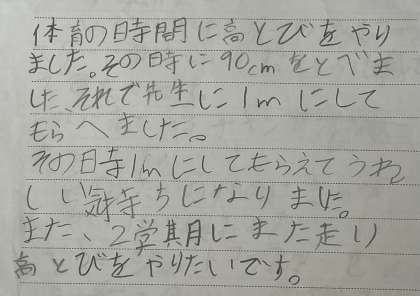 体育の時間に高とびをやり
ました。その時に90cmをとべま
した、それで先生に1mにして
もらへました。
その時1mにしてもらえてうれ
しい気持ちになりました。
また、2学期にまた走り
高とびをやりたいです。